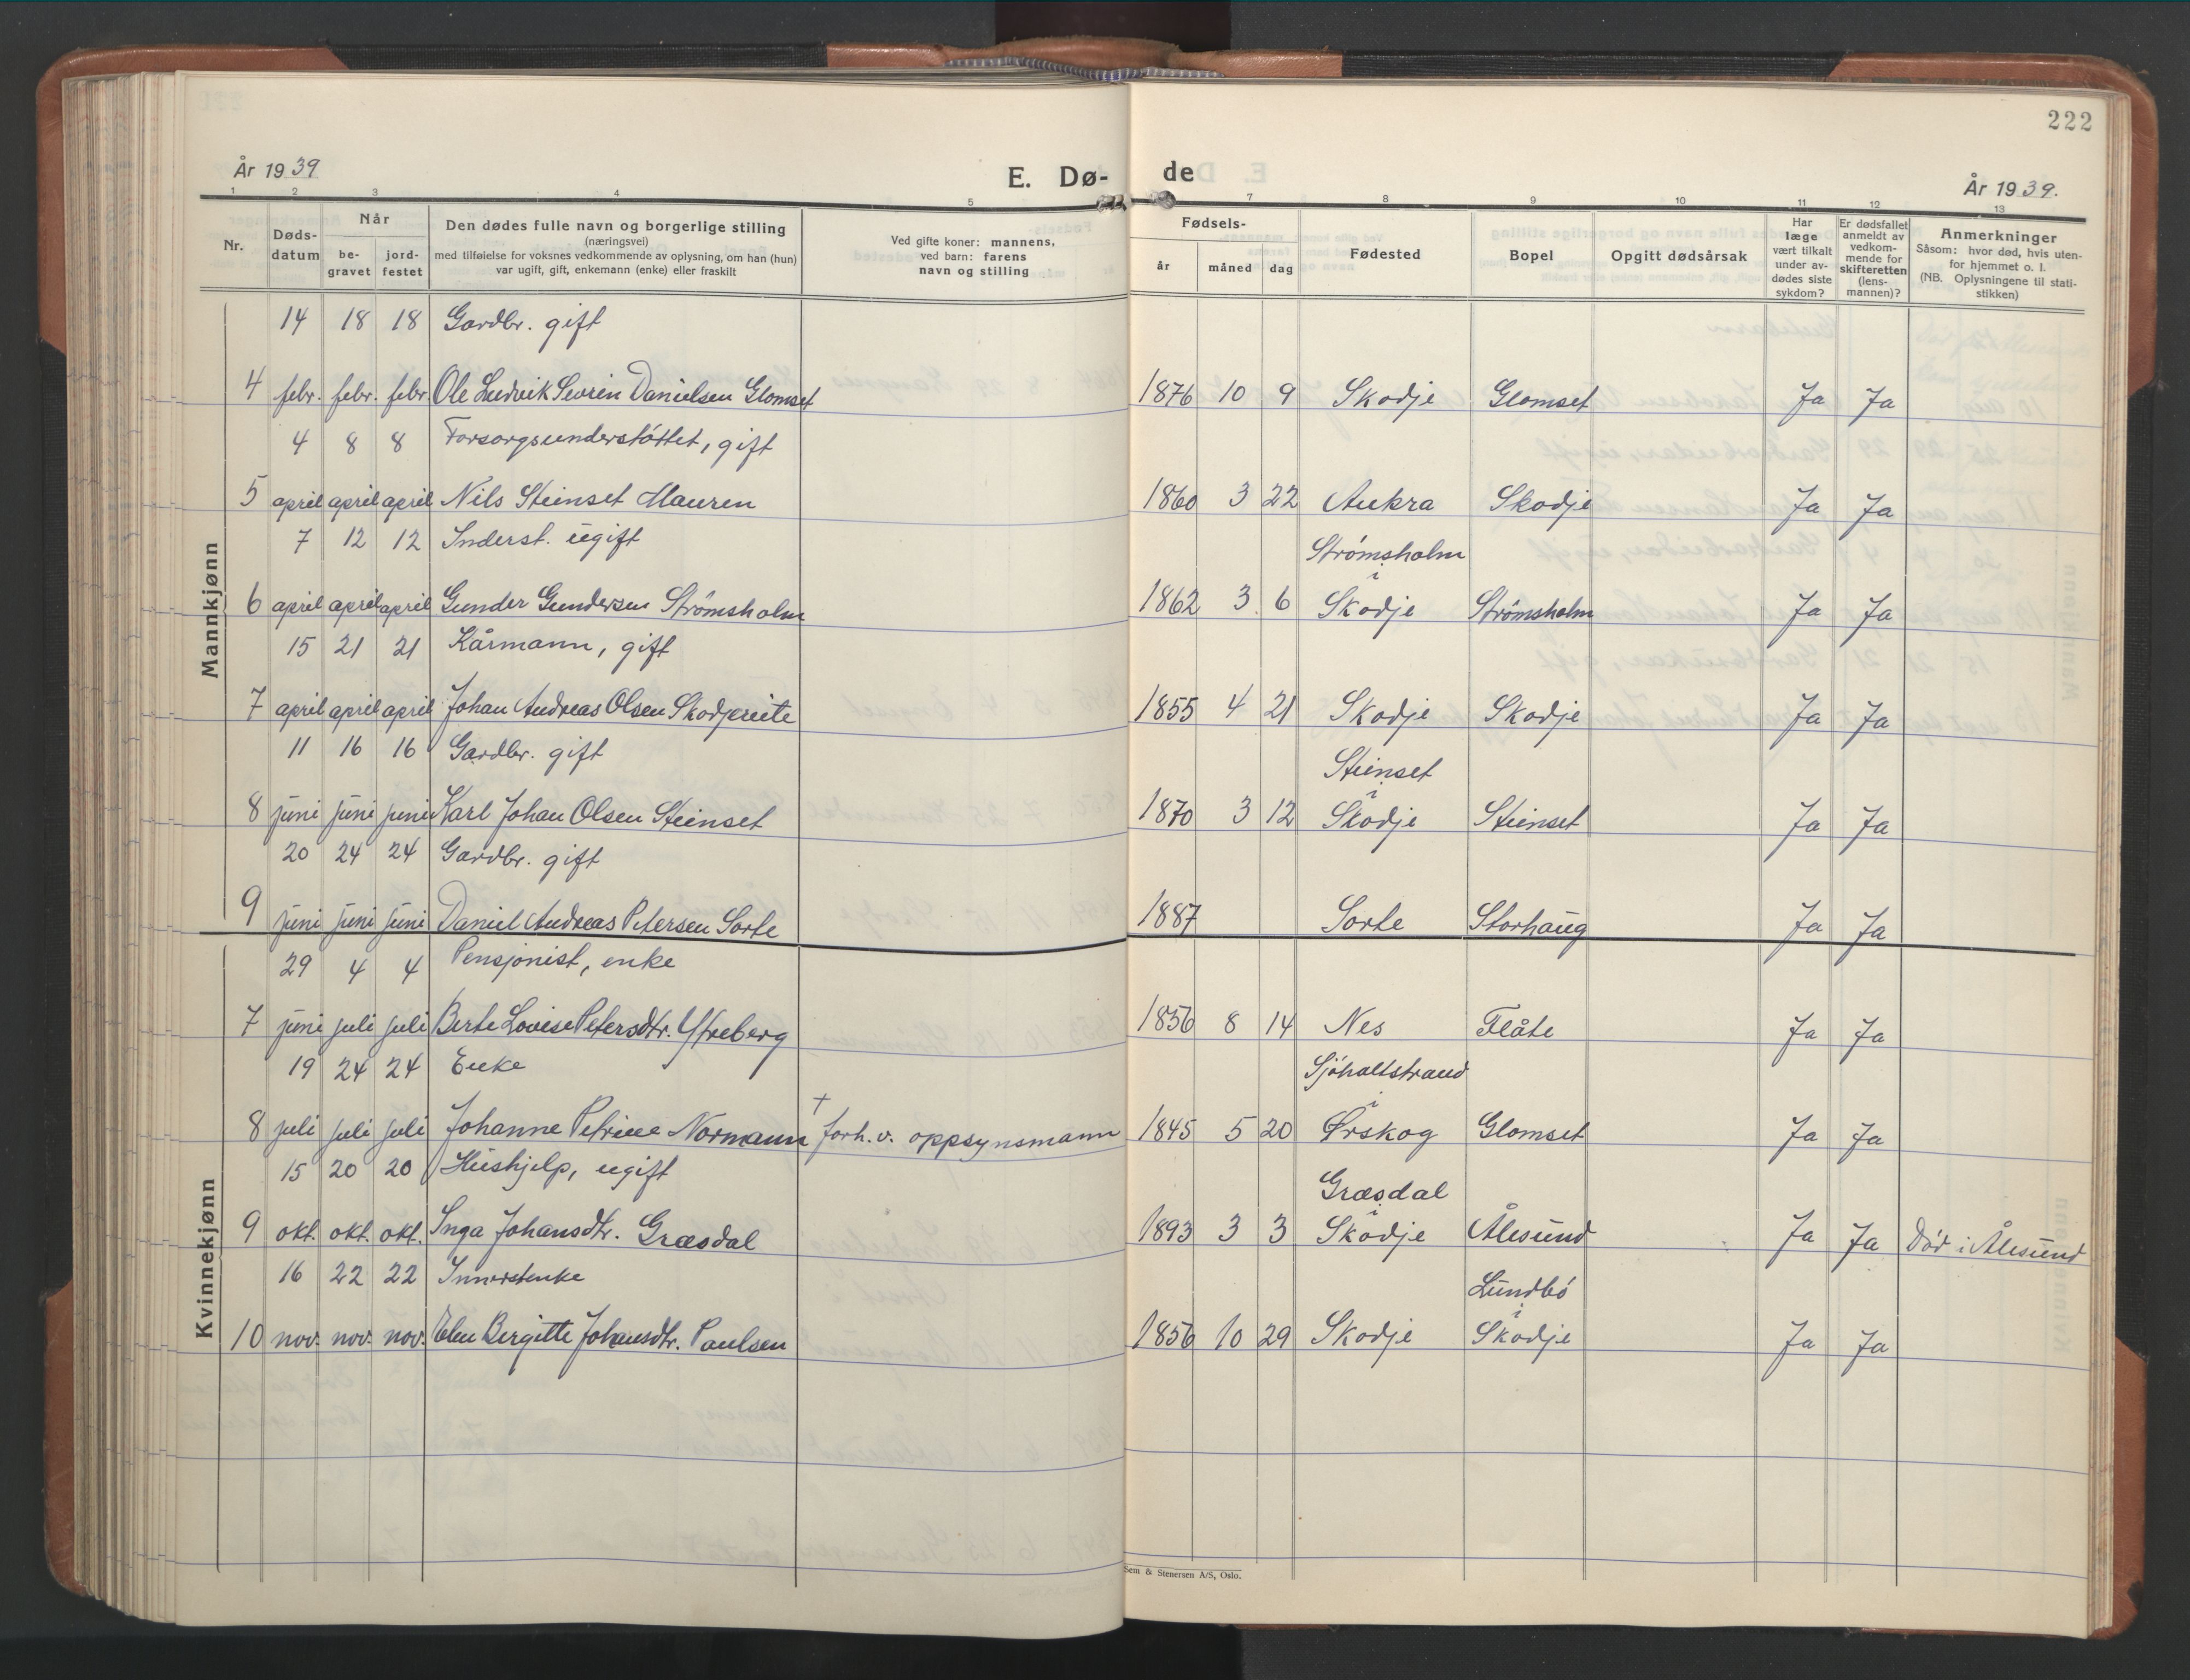 222
År 1939
E. Dø-
de
År 1939.
1 2 3 4 5
7 8 9 10 11 12 13
Nr.
Døds-
datum
Når
be-
gravet
jord-
festet
Den dødes fulle navn og borgerlige stilling
(næringsvei)
med tilføielse for voksnes vedkommende av oplysning, om han (hun)
var ugift, gift, enkemann (enke) eller fraskilt
Ved gifte koner: mannens,
ved barn: farens
navn og stilling
Fødsels-
år måned dag
Fødested
Bopel
Opgitt dødsårsak
Har
læge
vært tilkalt
under av-
dødes siste
sykdom?
Er dødsfallet
anmeldt av
vedkom-
mende for
skifteretten
(lens-
mannen)?
Anmerkninger
Såsom: hvor død, hvis uten-
for hjemmet o. l.
(NB. Oplysningene til stati-
stikken)
Mannkjønn
14 18 18 Gardbr. gift
4 febr. febr. febr. Ole Ludvik Sevrin Danielsen Glomset 1876 10 9 Skodje Glomset Ja Ja
4 8 8 Forsorgsunderstöttet, gift
5 april april april Nils Steinset Mauren 1860 3 22 Aukra Skodje Ja Ja
7 12 12 Inderst. ugift Strömsholm
i
6 april april april Gunder Gundersen Strömsholm 1862 3 6 Skodje Strömsholm Ja Ja
15 21 21 Kårmann, gift
7 april april april Johan Andreas Olsen Skodjereite 1855 4 21 Skodje Skodje Ja Ja
11 16 16 Gardbr. gift Steinset
i
8 juni juni juni Karl Johan Olsen Steinset 1870 3 12 Skodje Steinset Ja Ja
20 24 24 Gardbr. gift
9 juni juni juni Daniel Andreas Petersen Sorte 1887 Sorte Storhaug Ja Ja
Kvinnekjønn
29 4 4 Pensjonist, enke
7 juni juli juli Berte Lovise Petersdtr. Ytreberg 1856 8 14 Nes Flåte Ja Ja
19 24 24 Enke Sjöholtstrand
+ i
8 juli juli juli Johanne Petrine Normann forh. v. oppsynsmann 1845 5 20 Ørskog Glomset Ja Ja
15 20 20 Hushjelp, ugift Græsdal
i
9 okt. okt. okt. Inga Johansdtr. Græsdal 1893 3 3 Skodje Ålesund Ja Ja Död i Ålesund
16 22 22 Innerstenke Lundbö
i
10 nov. nov. nov. Elen Bergitte Johansdtr. Paulsen 1856 10 29 Skodje Skodje Ja Ja
Sem & Stenersen A/S, Oslo.